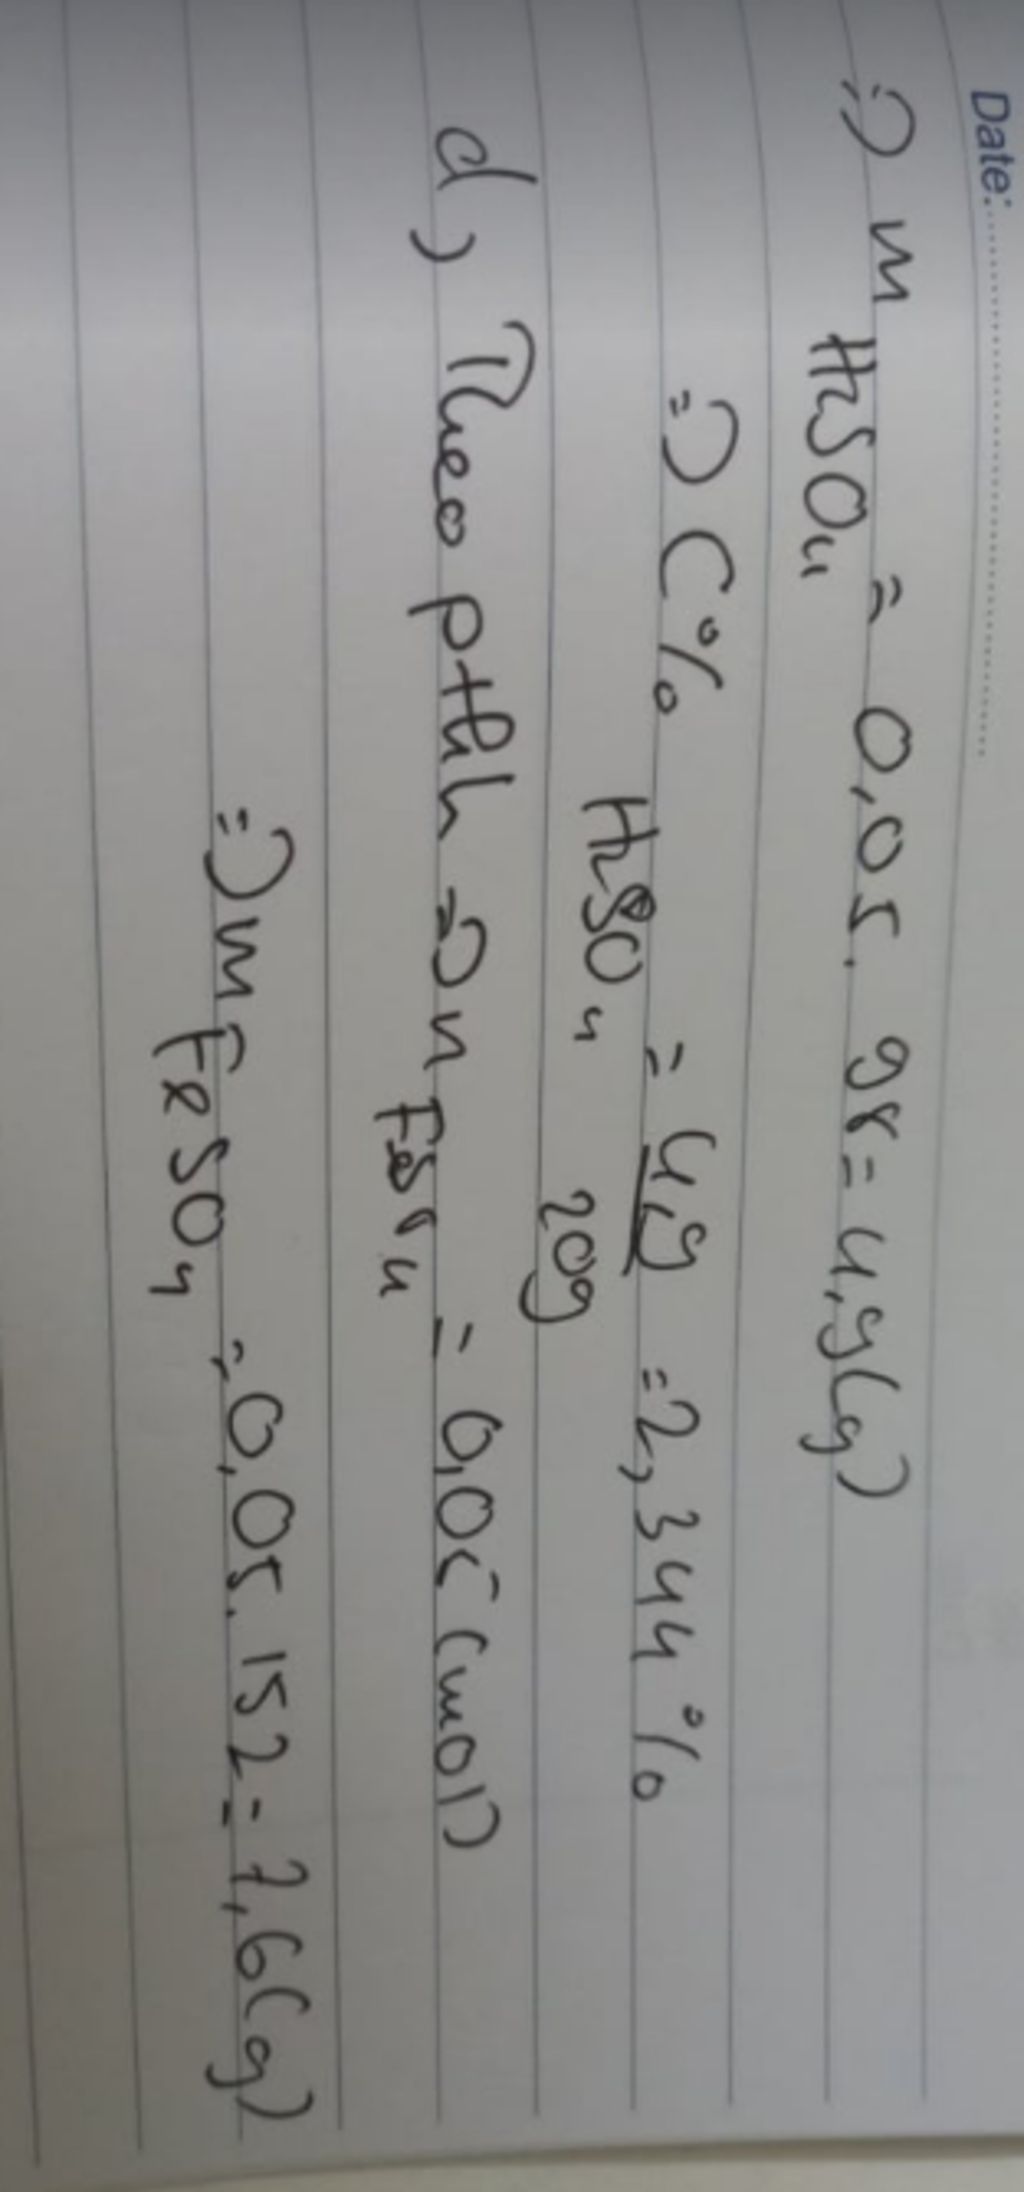 Date:
=> m H2SO4 = 0,05. 98 = 4,9(g)
=> C% H2SO4 = 4,9 / 209 = 2,344 %
d) Theo pthh => n FeSO4 = 0,05 (mol)
=> m FeSO4 = 0,05. 152 = 7,6(g)